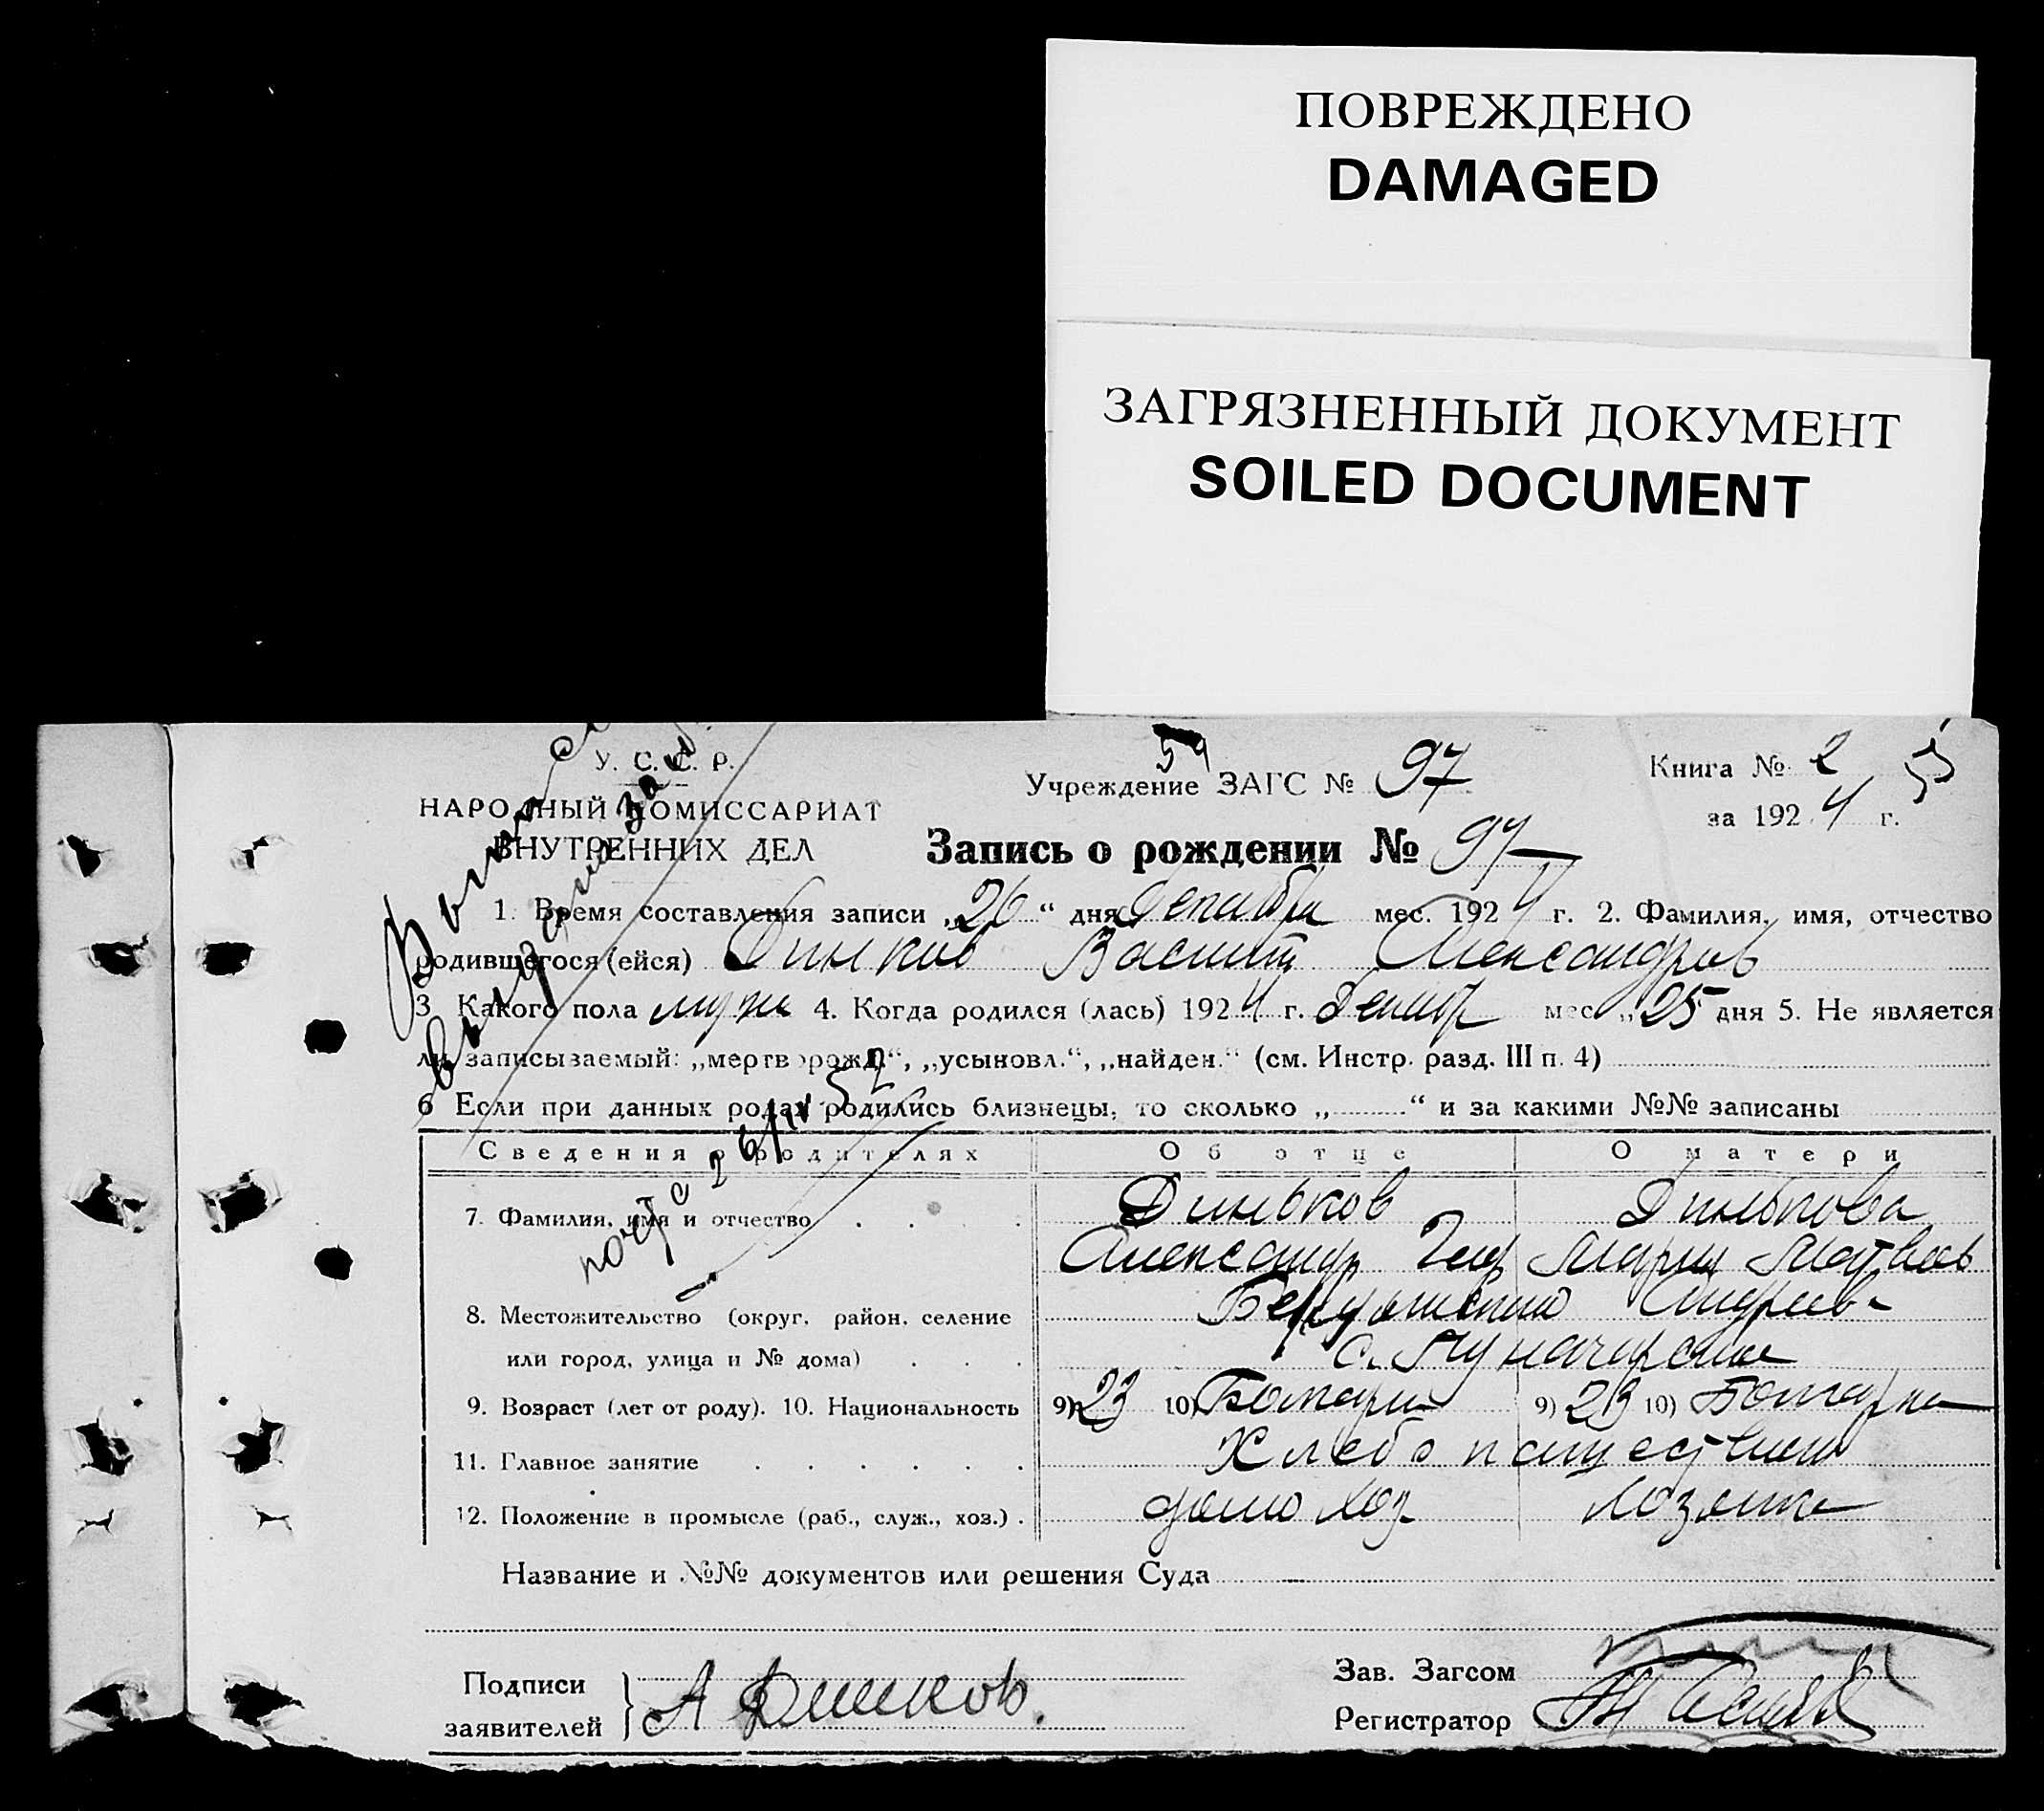 ПОВРЕЖДЕНО
DAMAGED
ЗАГРЯЗНЕННЫЙ ДОКУМЕНТ
SOILED DOCUMENT
У. С. С. Р.
НАРОДНЫЙ КОМИССАРИАТ
ВНУТРЕННИХ ДЕЛ
Учреждение ЗАГС № 97
Книга № 2
за 1924 г.
Запись о рождении № 97
1. Время составления записи „26“ дня Декабря мес. 1924 г. 2. Фамилия, имя, отчество
родившегося (ейся) Динков Василий Александров
3 Какого пола муж 4. Когда родился (лась) 1924 г. Декабр мес. „25 дня 5. Не является
ли записываемый: „мертворожд.“, „усыновл.“, „найден.“ (см. Инстр. разд. III п. 4)
6 Если при данных родах родились близнецы, то сколько „ “ и за какими №№ записаны
Сведения о родителях Об отце О матери
7. Фамилия, имя и отчество Диньков Динькова
Александр Мария Матвеев
8. Местожительство (округ, район, селение
или город, улица и № дома) с.
9. Возраст (лет от роду). 10. Национальность 9) 23 10) Болгарин 9) 23 10) Болгарка
11. Главное занятие Хлебопашество
12. Положение в промысле (раб., служ., хоз.) домохоз хозяйка
Название и №№ документов или решения Суда
Подписи
заявителей А Динков.
Зав. Загсом
Регистратор